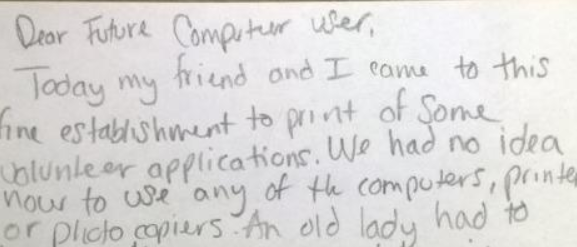 Dear Future Computer user,
Today my friend and I came to this
fine establishment to print of some
volunteer applications. We had no idea
how to use any of the computers, printer
or photo copiers. An old lady had to